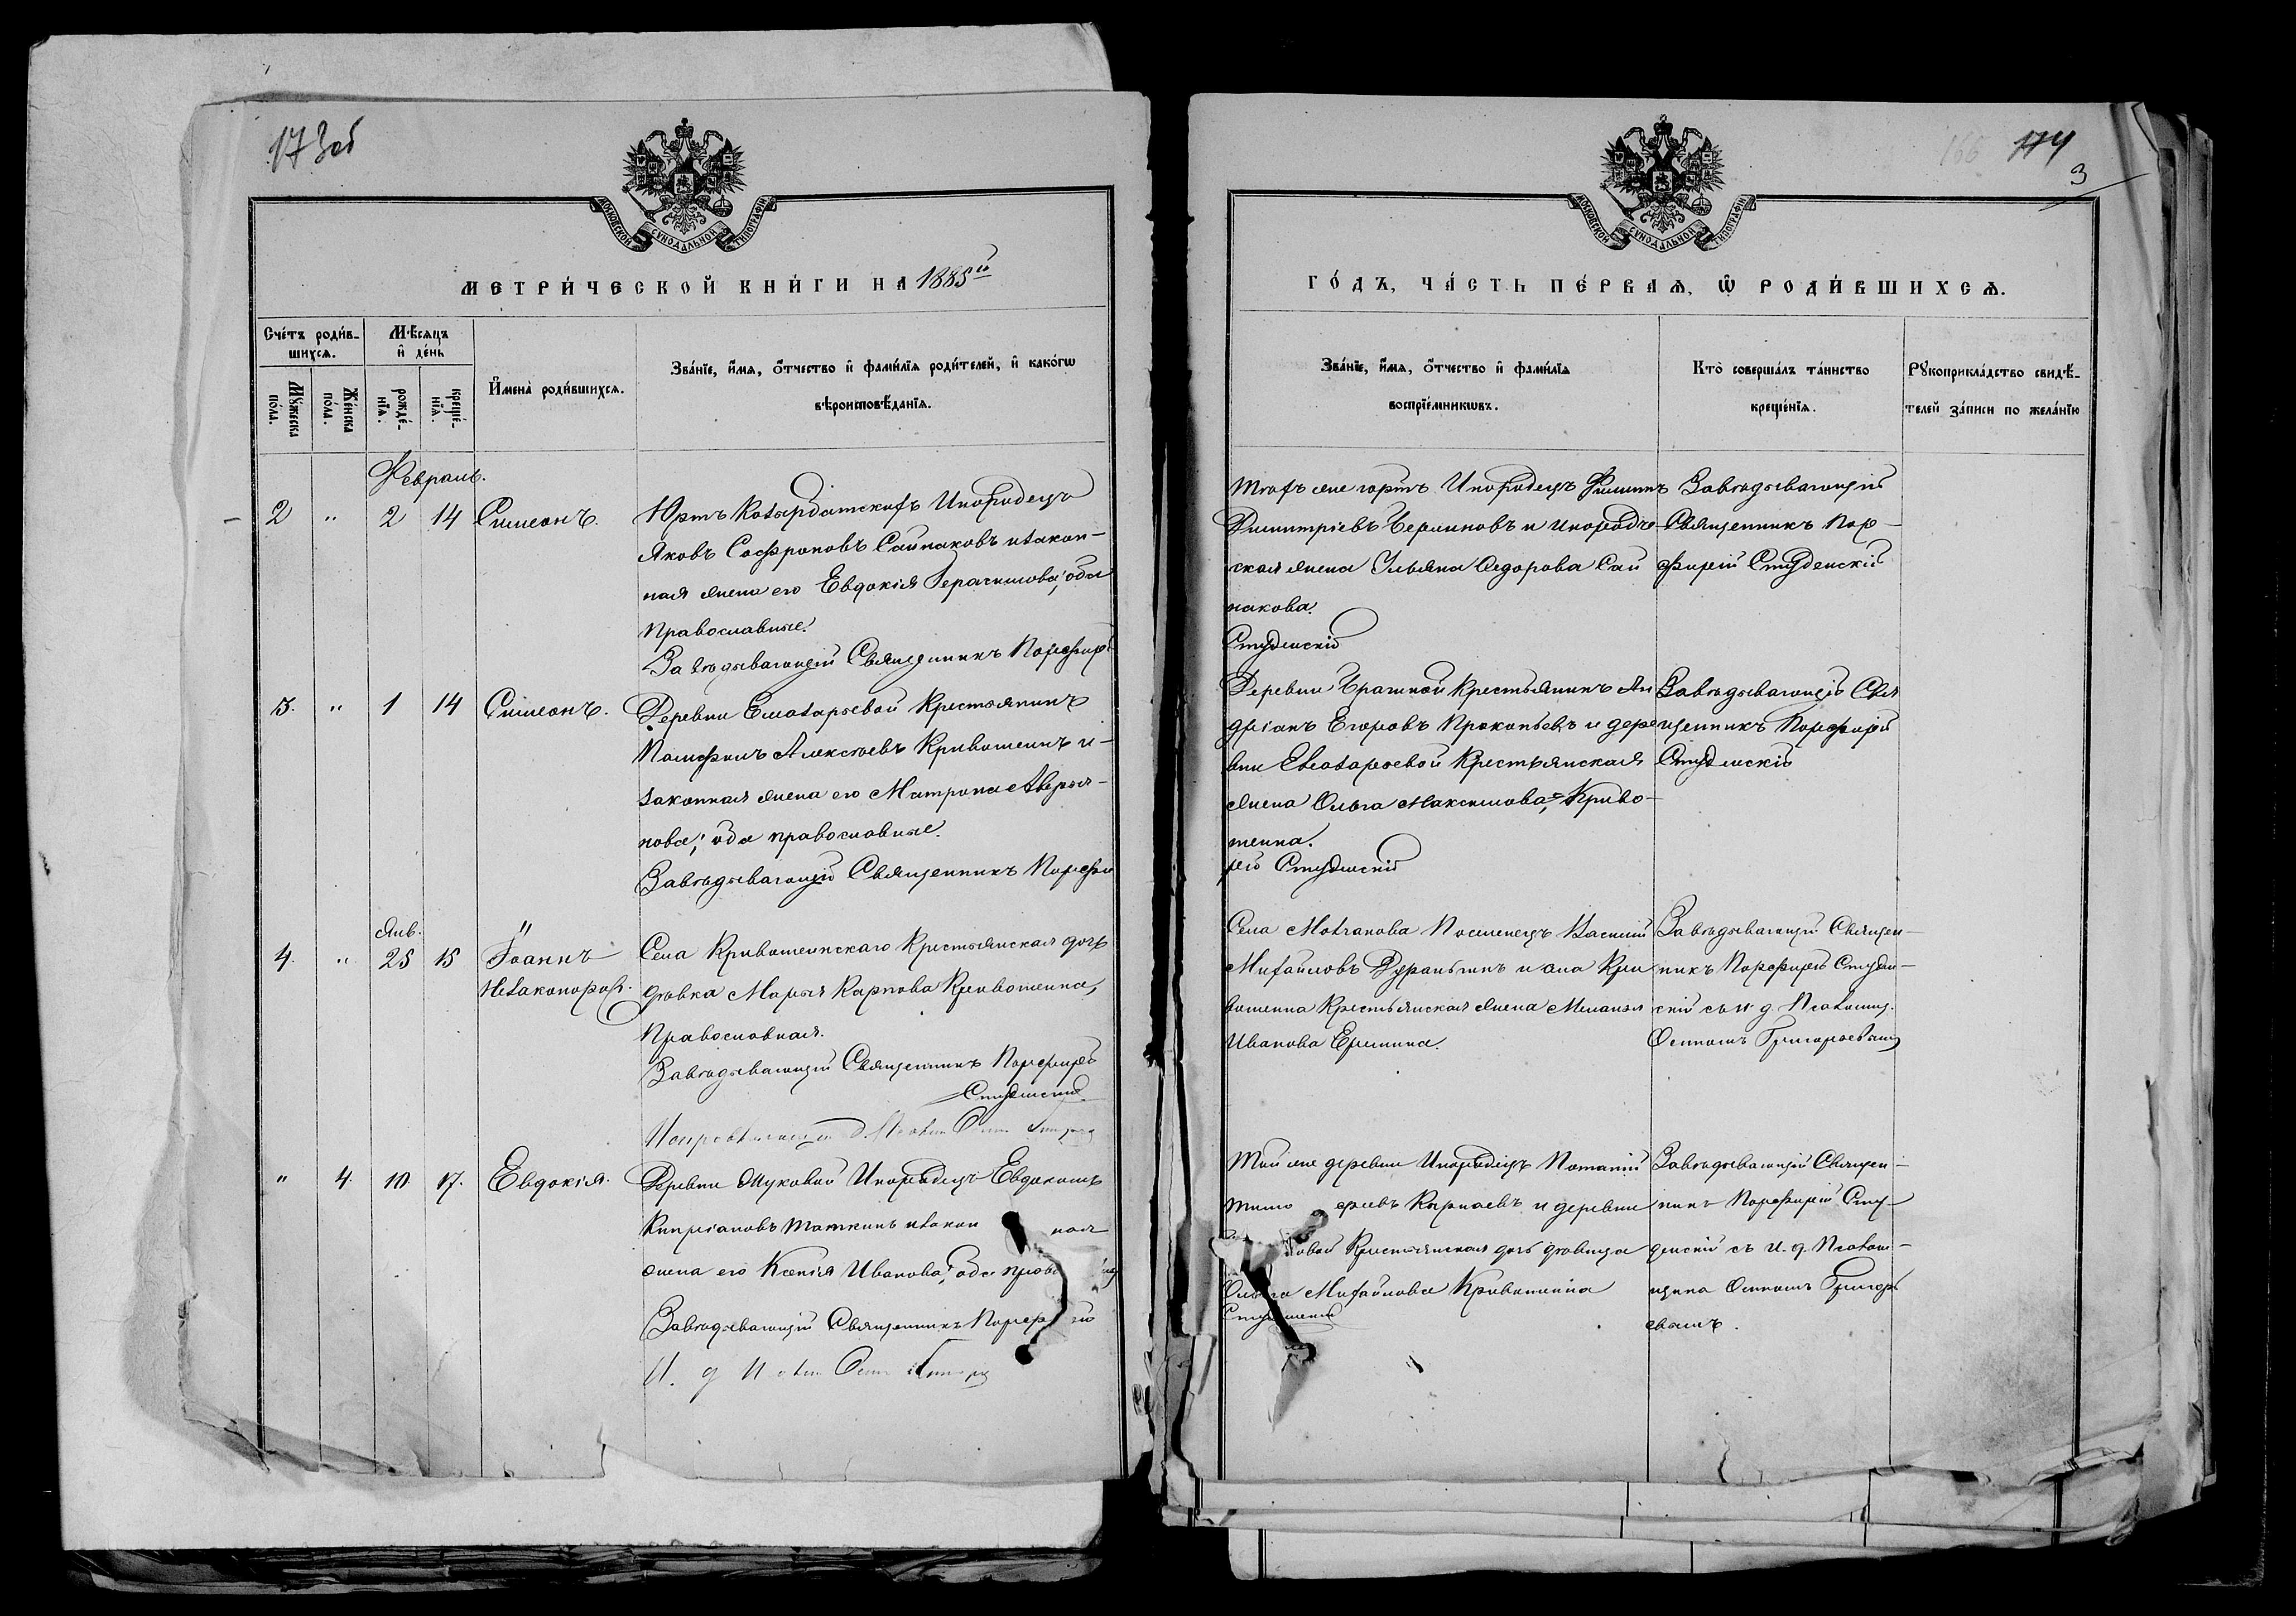 173об
МОСКОВСКОЙ СѴНОДАЛЬНОЙ ТИПОГРАФІИ
МЕТРИ́ЧЕСКОЙ КНИ́ГИ НА 1885й
Сче́тъ роди́в-
шихсѧ.
Мѣ́сѧцъ
и҆ де́нь
Мꙋ́жеска
по́ла.
Же́нска
по́ла.
рожде́-
нїѧ.
креще́-
нїѧ.
И҆мена̀ роди́вшихсѧ.
Зва́нїе, и҆́мѧ, ѻ҆́тчество и҆ фами́лїѧ роди́телей, и҆ како́гѡ
вѣроисповѣ́данїѧ.
Февраль.
2 " 2 14 Симеонъ.
Юртъ Инородецъ
Яковъ Софроновъ Сайнаковъ и закон-
ная жена его Евдокія Герасимова, оба
православные.
Завѣдывающій Священникъ Порфирі
3. " 1 14 Симеонъ.
Деревни Елизарьевой Крестьянинъ
Памфилъ Алексѣевъ Кривошеинъ и
законная жена его Матрона Аверья-
нова; оба православные.
Завѣдывающій Священникъ Порфи
Янв.
4. " 25 15 Іоаннъ
Незаконорож.
Села Кривошеинскаго Крестьянская дочь
дѣвка Марья Карпова Кривошеина,
Православная.
Завѣдывающій Священникъ Порфирій
Студенскій
" 4. 10 17. Евдокія.
Деревни Жуковой Инородецъ Евдокимъ
Кипріановъ Таткинъ и закон ная
жена его Ксенія Иванова, оба право
Завѣдывающій Священникъ Порфирій
166 174
3
МОСКОВСКОЙ СѴНОДАЛЬНОЙ ТИПОГРАФІИ
ГО́ДЪ, ЧА́СТЬ ПЕ́РВАѦ, Ѡ҆ РОДИ́ВШИХСѦ.
Зва́нїе, и҆́мѧ, ѻ҆́тчество и҆ фами́лїѧ
воспрїе́мникѡвъ.
Кто̀ соверша́лъ та́инство
креще́нїѧ.
Рꙋкоприкла́дство свидѣ́-
телей за́писи по жела́нїю
Тѣхъ же юртъ Инородецъ Филиппъ
Димитріевъ и инородче-
ская жена Ульяна Ѳедорова Сай
накова.
Студенскій
Завѣдывающій
Священникъ Пор-
фирій Студенскій
Деревни Крестьянинъ Ан
дріанъ Егоровъ Прокопьевъ и дере
вни Елизарьевой Крестьянская
жена Ольга Максимова, Криво-
шеина.
рій Студенскій
Завѣдывающій Свя
щенникъ Порфирій
Студенскій
Села Молчанова Поселенецъ Василій
Михайловъ и села Кри
вошеина Крестьянская жена Меланья
Иванова Еремина.
Завѣдывающій Священ-
никъ Порфирій Студен-
скій съ и. д. Псаломщ.
Осипомъ Григорьевым
Той же деревни Инородецъ Потапій
Тимо феевъ Карнаевъ и деревни
овой Крестьянская дочь дѣвица
Ольга Михайлова Кривошеина
Студенскій
Завѣдывающій Священ-
никъ Порфирій Сту-
денскій съ и. д. Псалом-
щика Осипомъ Григорь
евымъ.